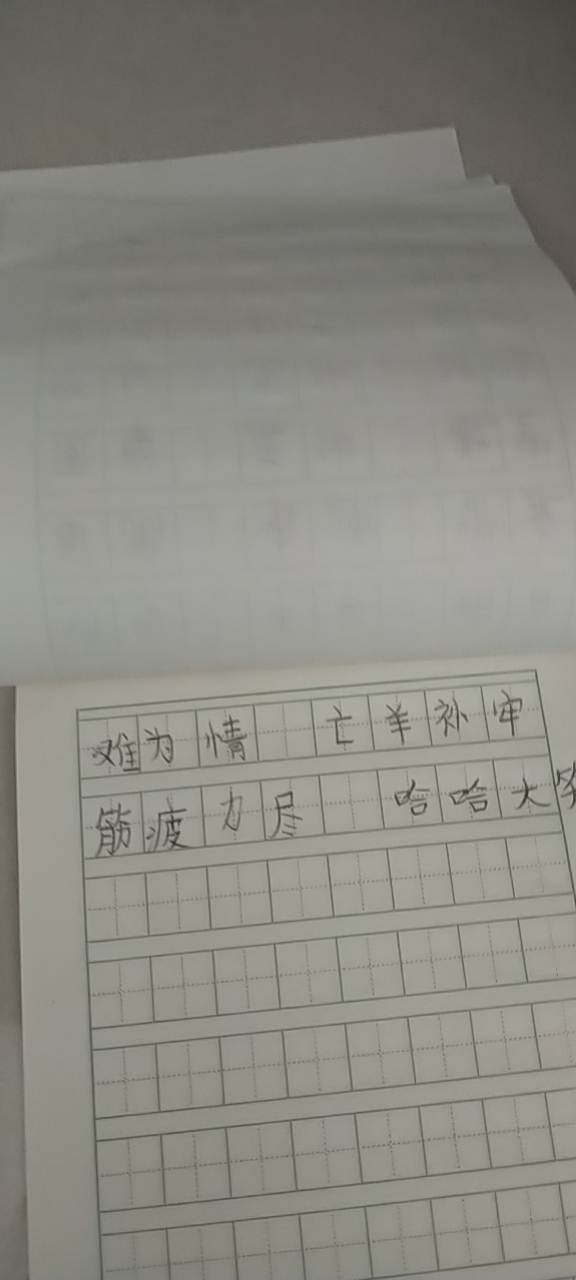 难为情 亡羊补牢
筋疲力尽 哈哈大笑